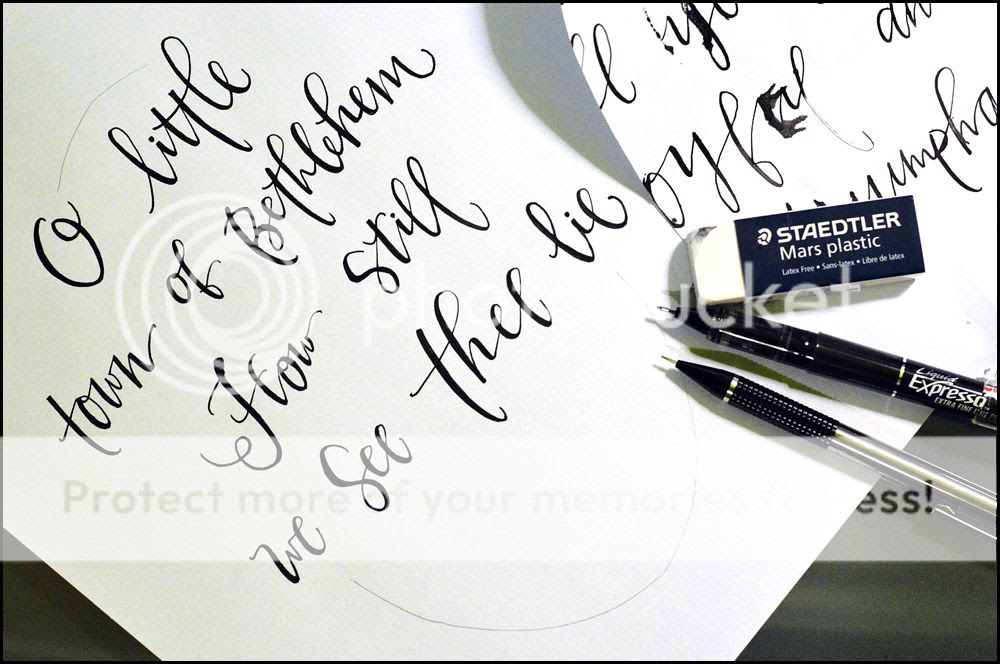 O little
town of Bethlehem
How Still
we See thee lie
ll ye
oyful an
umpha
STAEDTLER
Mars plastic
Latex Free • Sans-latex • Libre de latex
Liquid
Expresso
EXTRA FINE
photobucket
Protect more of your memories for less!